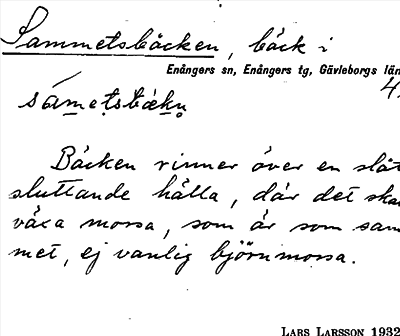 Sammetsbäcken, bäck i
Enångers sn, Enångers tg, Gävleborgs län
4.
sámetsbäkn̥
Bäcken rinner över en slät
sluttande hälla, där det ska
växa mossa, som är som sam
met, ej vanlig björnmossa.
LARS LARSSON 1932